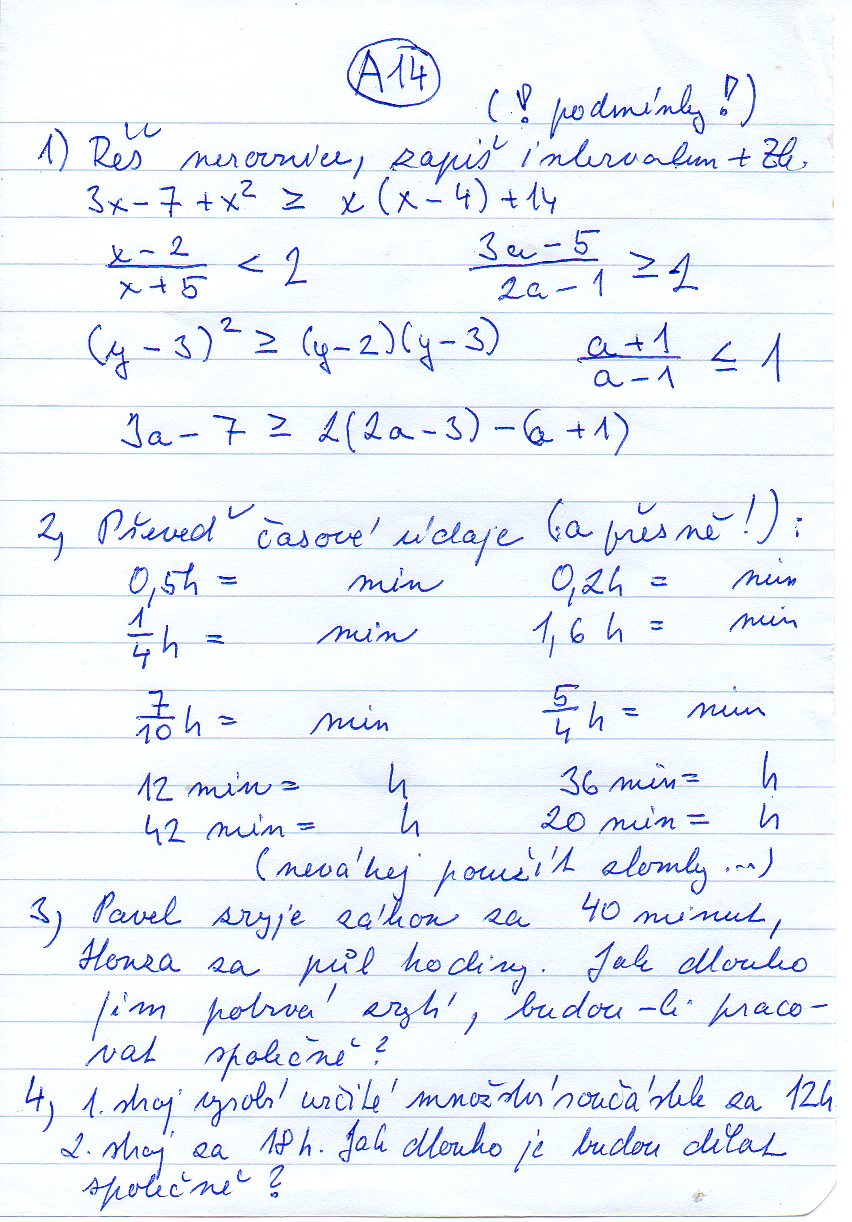 A14
(! podmínky!)
1) Řeš nerovnice, zapiš intervalem + Zk.
3x - 7 + x² ≥ x(x - 4) + 14
(x - 2)/(x + 5) < 2 (3a - 5)/(2a - 1) ≥ 2
(y - 3)² ≥ (y - 2)(y - 3) (a + 1)/(a - 1) ≤ 1
3a - 7 ≥ 2(2a - 3) - (a + 1)
2, Převeď časové údaje (a přesně!):
0,5h = min 0,2h = min
1/4 h = min 1,6 h = min
7/10 h = min 5/4 h = min
12 min = h 36 min = h
42 min = h 20 min = h
(neváhej použít zlomky ...)
3, Pavel zryje záhon za 40 minut,
Honza za půl hodiny. Jak dlouho
jim potrvá zrytí, budou-li praco-
vat společně?
4, 1. stroj vyrobí určité množství součástek za 12h
2. stroj za 18h. Jak dlouho je budou dělat
společně?